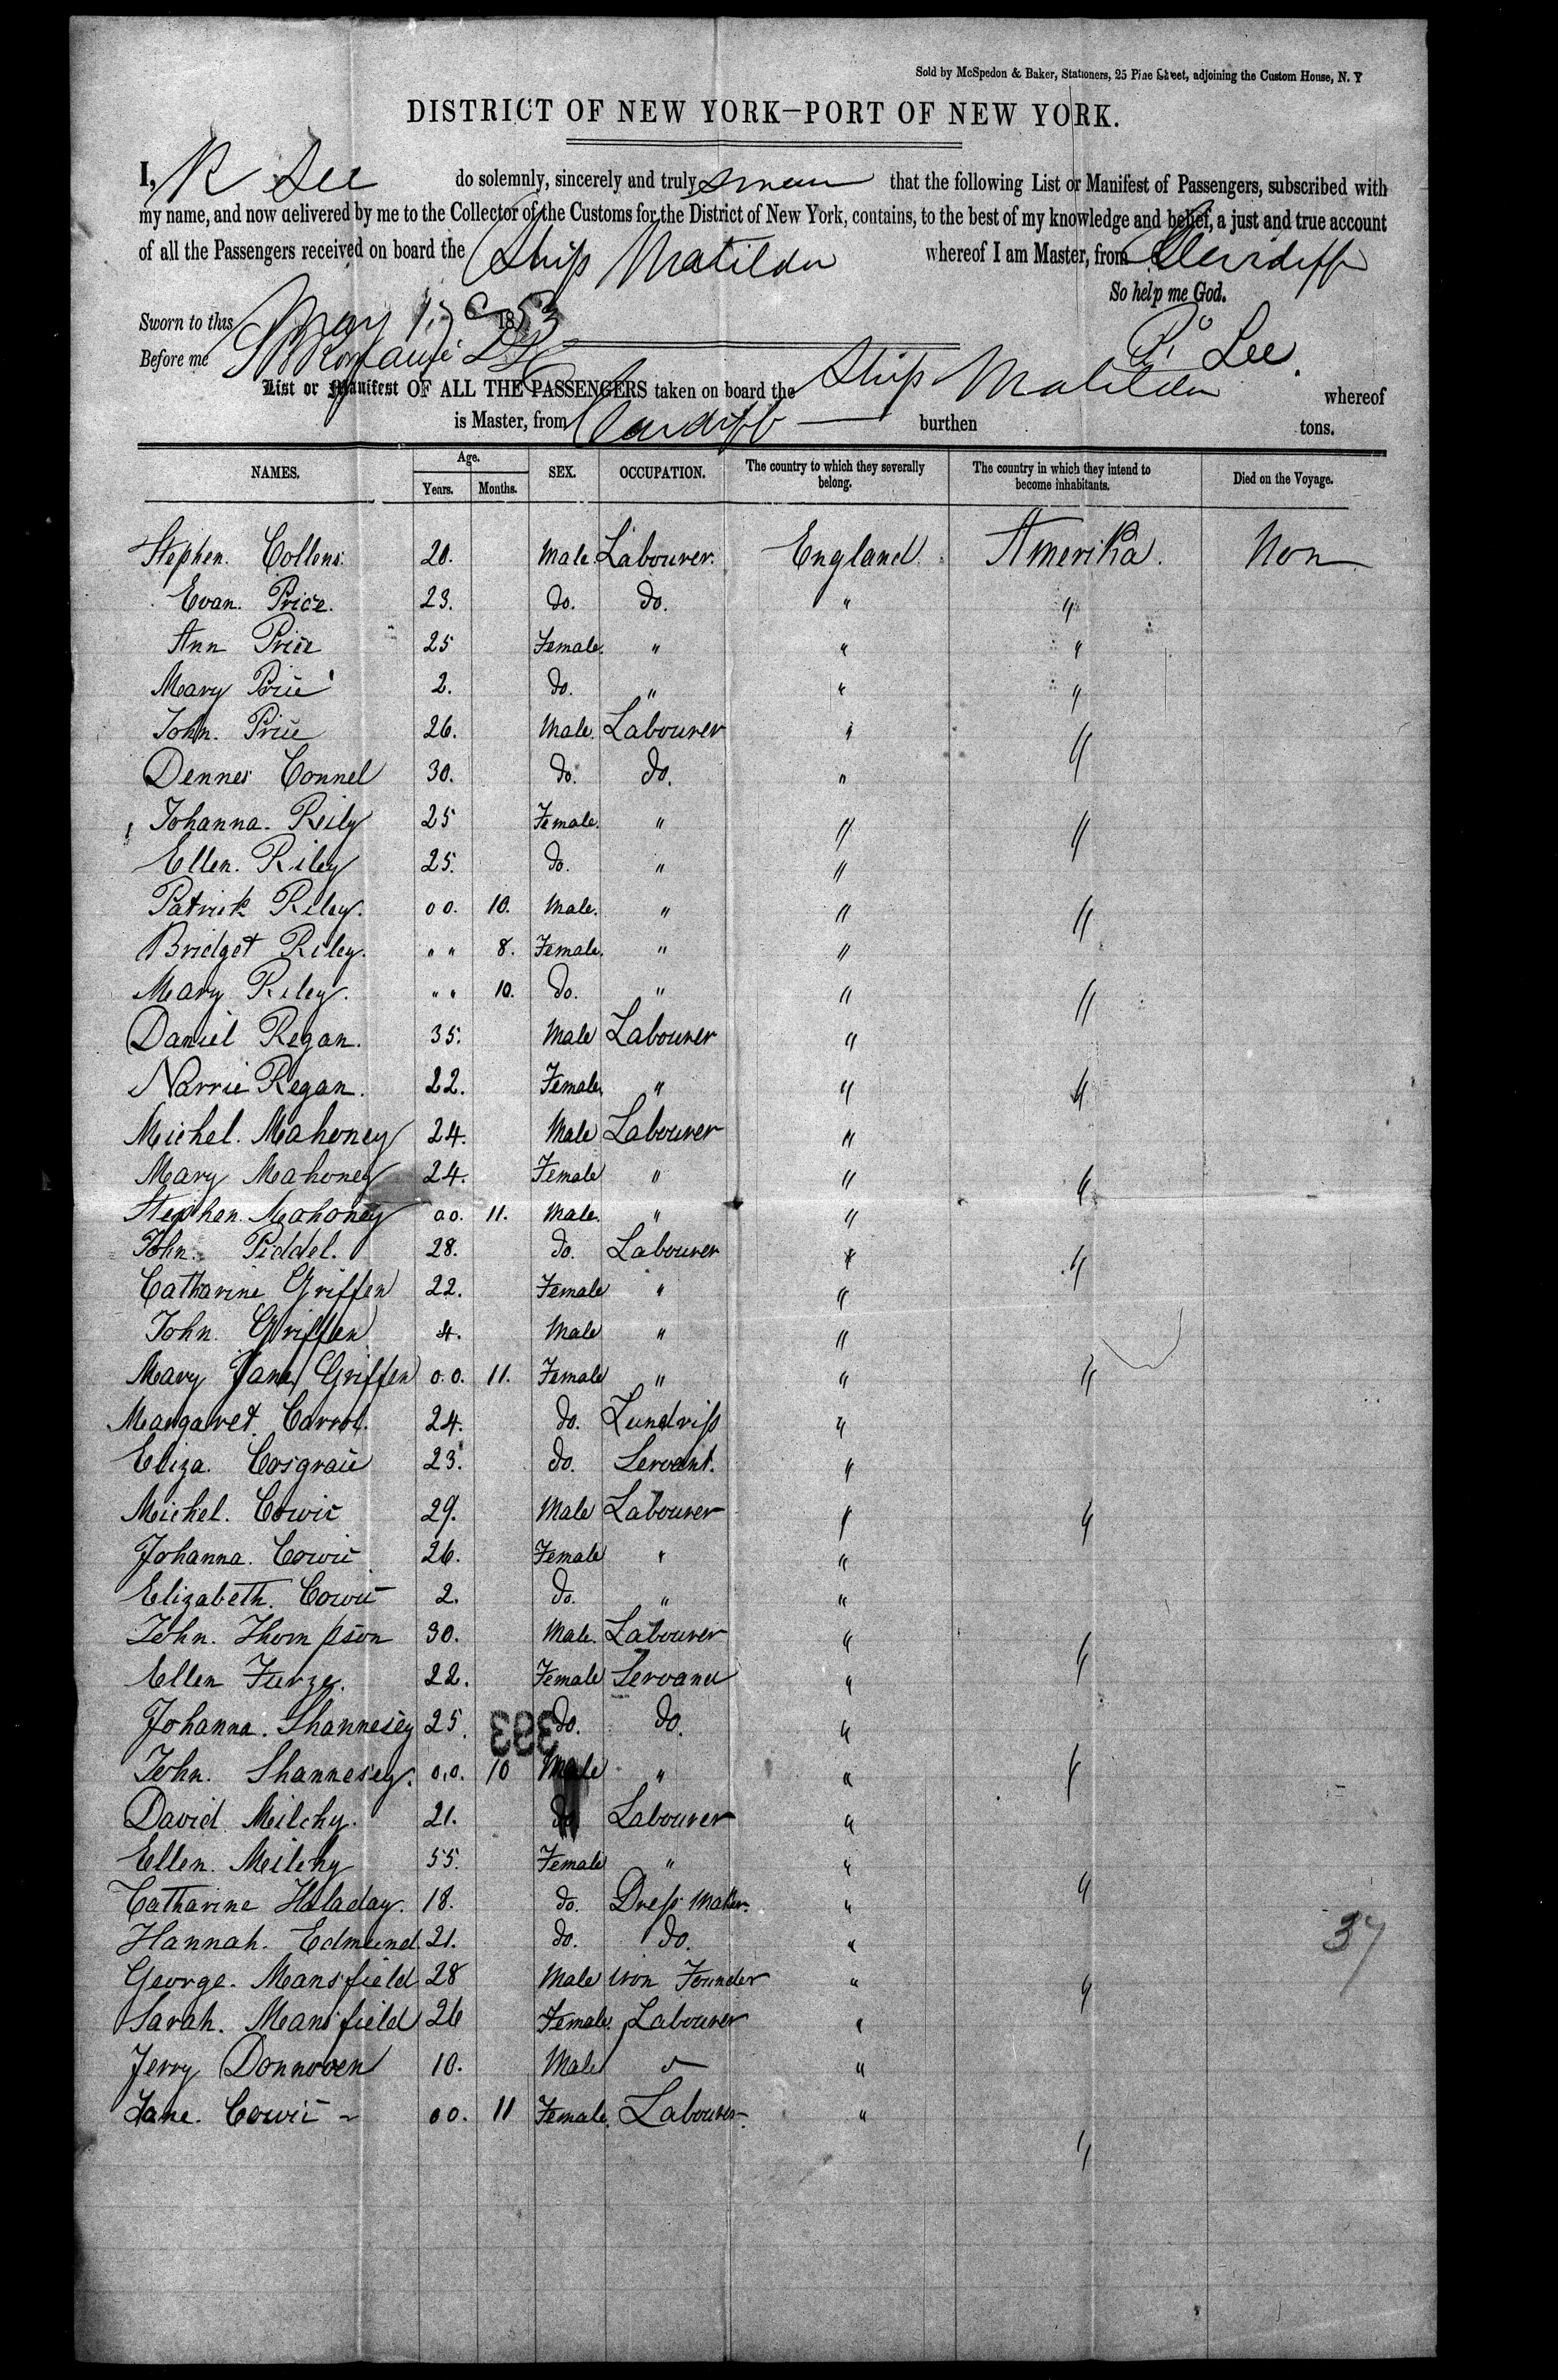 Sold by McSpedon & Baker, Stationers, 25 Pine Street, adjoining the Custom House, N. Y
DISTRICT OF NEW YORK—PORT OF NEW YORK.
I, R Lee do solemnly, sincerely and truly swear that the following List or Manifest of Passengers, subscribed with
my name, and now delivered by me to the Collector of the Customs for the District of New York, contains, to the best of my knowledge and belief, a just and true account
of all the Passengers received on board the Ship Matilda whereof I am Master, from Cardiff
So help me God.
Sworn to this May 1853
Before me R. Lee.
List or Manifest OF ALL THE PASSENGERS taken on board the Ship Matilda whereof
is Master, from Cardiff — burthen tons.
NAMES. Age. Years. Months. SEX. OCCUPATION. The country to which they severally belong. The country in which they intend to become inhabitants. Died on the Voyage.
Stephen. Collens. 20. Male. Labourer. England. Amerika. Non
Evan. Price. 23. do. do. " "
Ann Price 25 Female. " " "
Mary Price 2. do. " " "
John. Price 26. Male. Labourer " "
Dennes Connel 30. do. do. "
Johanna. Reily 25 Female. " " "
Ellen. Riley 25. do. " "
Patrick Riley. 00. 10. Male. " " "
Bridget Riley. " " 8. Female. " "
Mary Riley. " " 10. do. " " "
Daniel Regan. 35. Male Labourer "
Norrie Regan. 22. Female. " " "
Michel. Mahoney 24. Male Labourer "
Mary Mahoney 24. Female " " "
Stephen. Mahoney 00. 11. Male. " "
John. Piddel. 28. do. Labourer " "
Catharine Griffen 22. Female " "
John. Griffen 4. Male " "
Mary Jane Griffen 0.0. 11. Female " " "
Margaret. Carrol. 24. do. Lundriss "
Eliza. Cosgraie 23. do. Servant. "
Michel. Cowie 29. Male Labourer " "
Johanna. Cowie 26. Female " "
Elizabeth. Cowie 2. do. " "
John. Thompson 30. Male. Labourer " "
Ellen Furze. 22. Female Servant "
Johanna. Shannesey 25. do. do. "
393
John. Shannesey. 0.0. 10 Male " " "
David Meilchy. 21. do Labourer "
Ellen. Meilchy 55. Female " "
Catharine Haladay. 18. do. Dress Maker. " "
Hannah. Edmund. 21. do. do. "
37
George. Mansfield 28 Male Iron Founder " "
Sarah. Mansfield 26 Female. Labourer "
Jerry Donnoven 10. Male "
Jane. Cowie 00. 11 Female. Labourer. " "